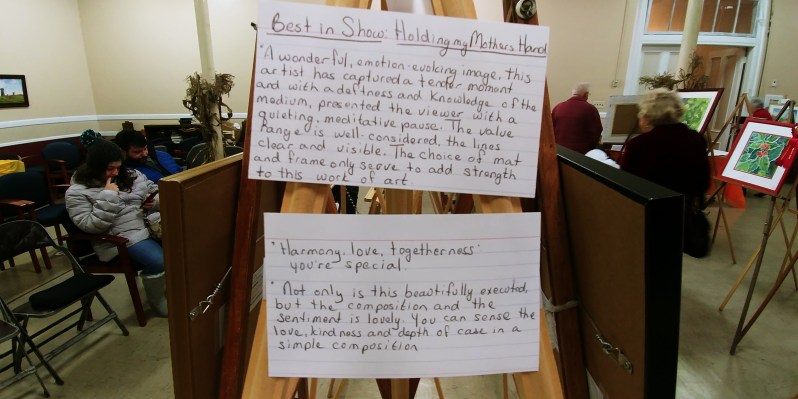 Best in Show: Holding my Mothers Hand
"A wonderful, emotion-evoking image, this
artist has captured a tender moment
and with a deftness and knowledge of the
medium, presented the viewer with a
quieting, meditative pause. The value
range is well-considered, the lines
clear and visible. The choice of mat
and frame only serve to add strength
to this work of art.
"Harmony, love, togetherness"
you're special.
"Not only is this beautifully executed,
but the composition and the
sentiment is lovely. You can sense the
love, kindness and depth of case in a
simple composition